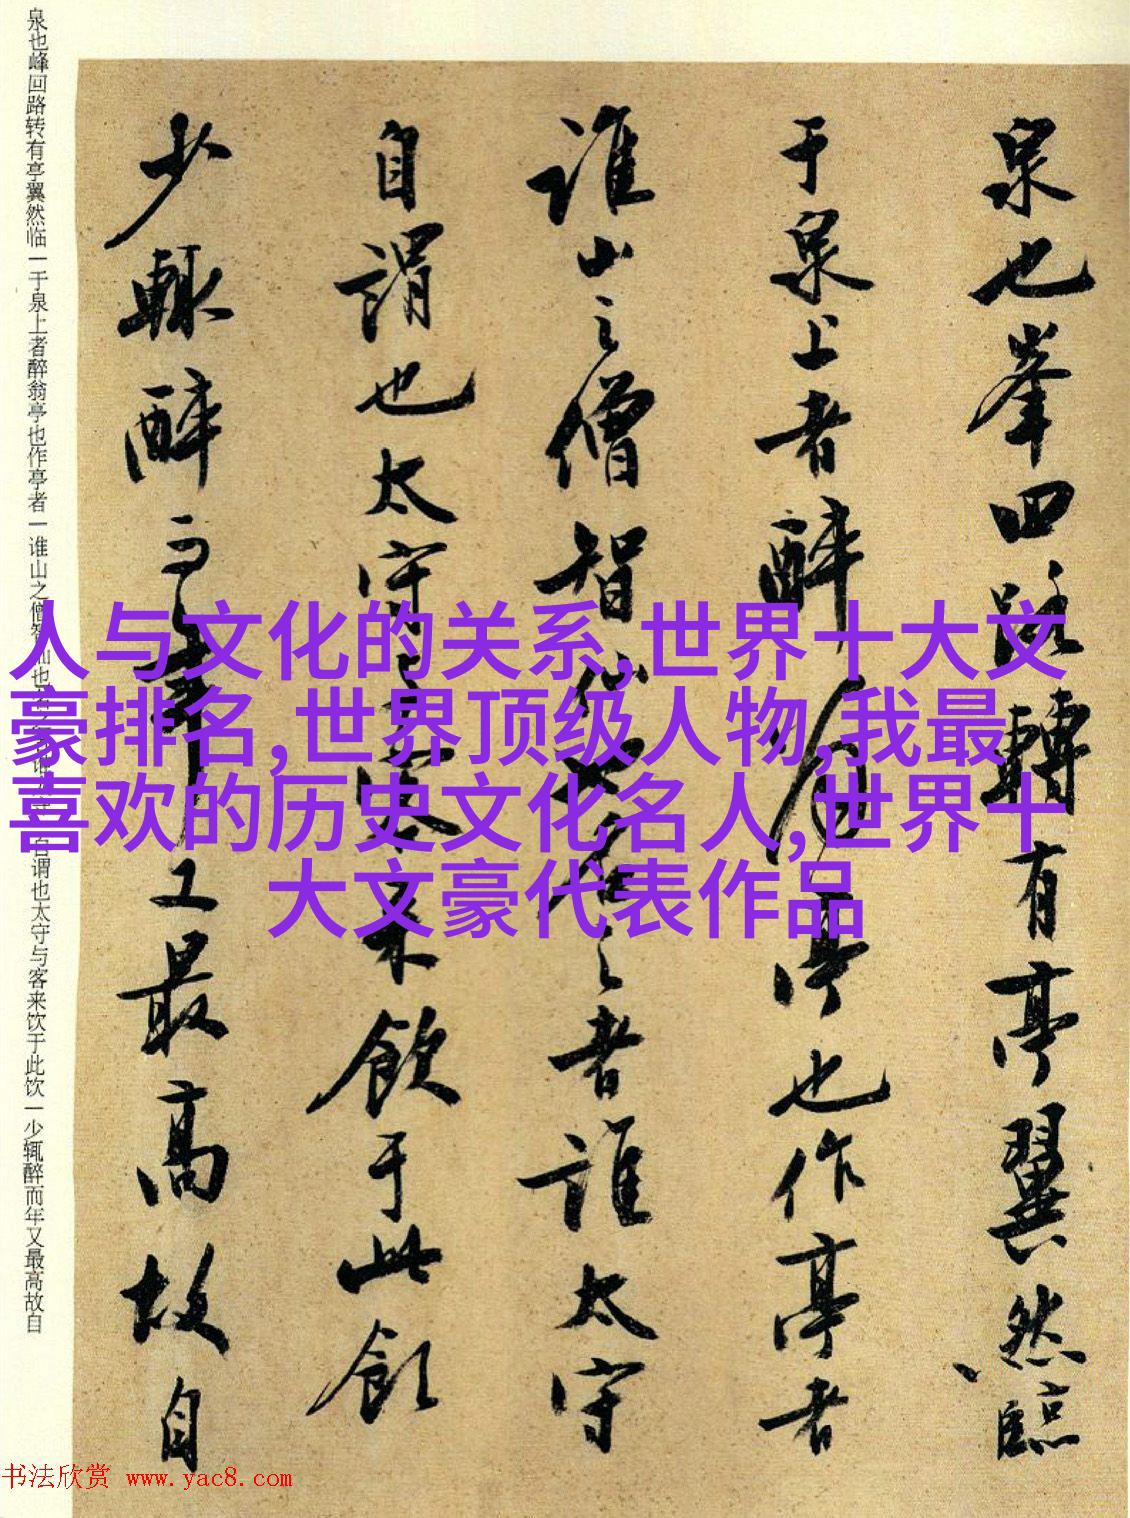 泉也峯回路轉有亭翼然臨
于泉上者醉翁亭也作亭者
誰山之僧智仙也名之者誰太守
自謂也太守与客来飲于此飲
少輙醉而年又最高故自
泉也峰回路转有亭翼然临一于泉上者醉翁亭也作亭者一谁山之僧智仙也名之者谁太守一自谓也太守与客来饮于此饮一少辄醉而年又最高故自
人与文化的关系,世界十大文
豪排名,世界顶级人物,我最
喜欢的历史文化名人,世界十
大文豪代表作品
书法欣赏 www.yac8.com